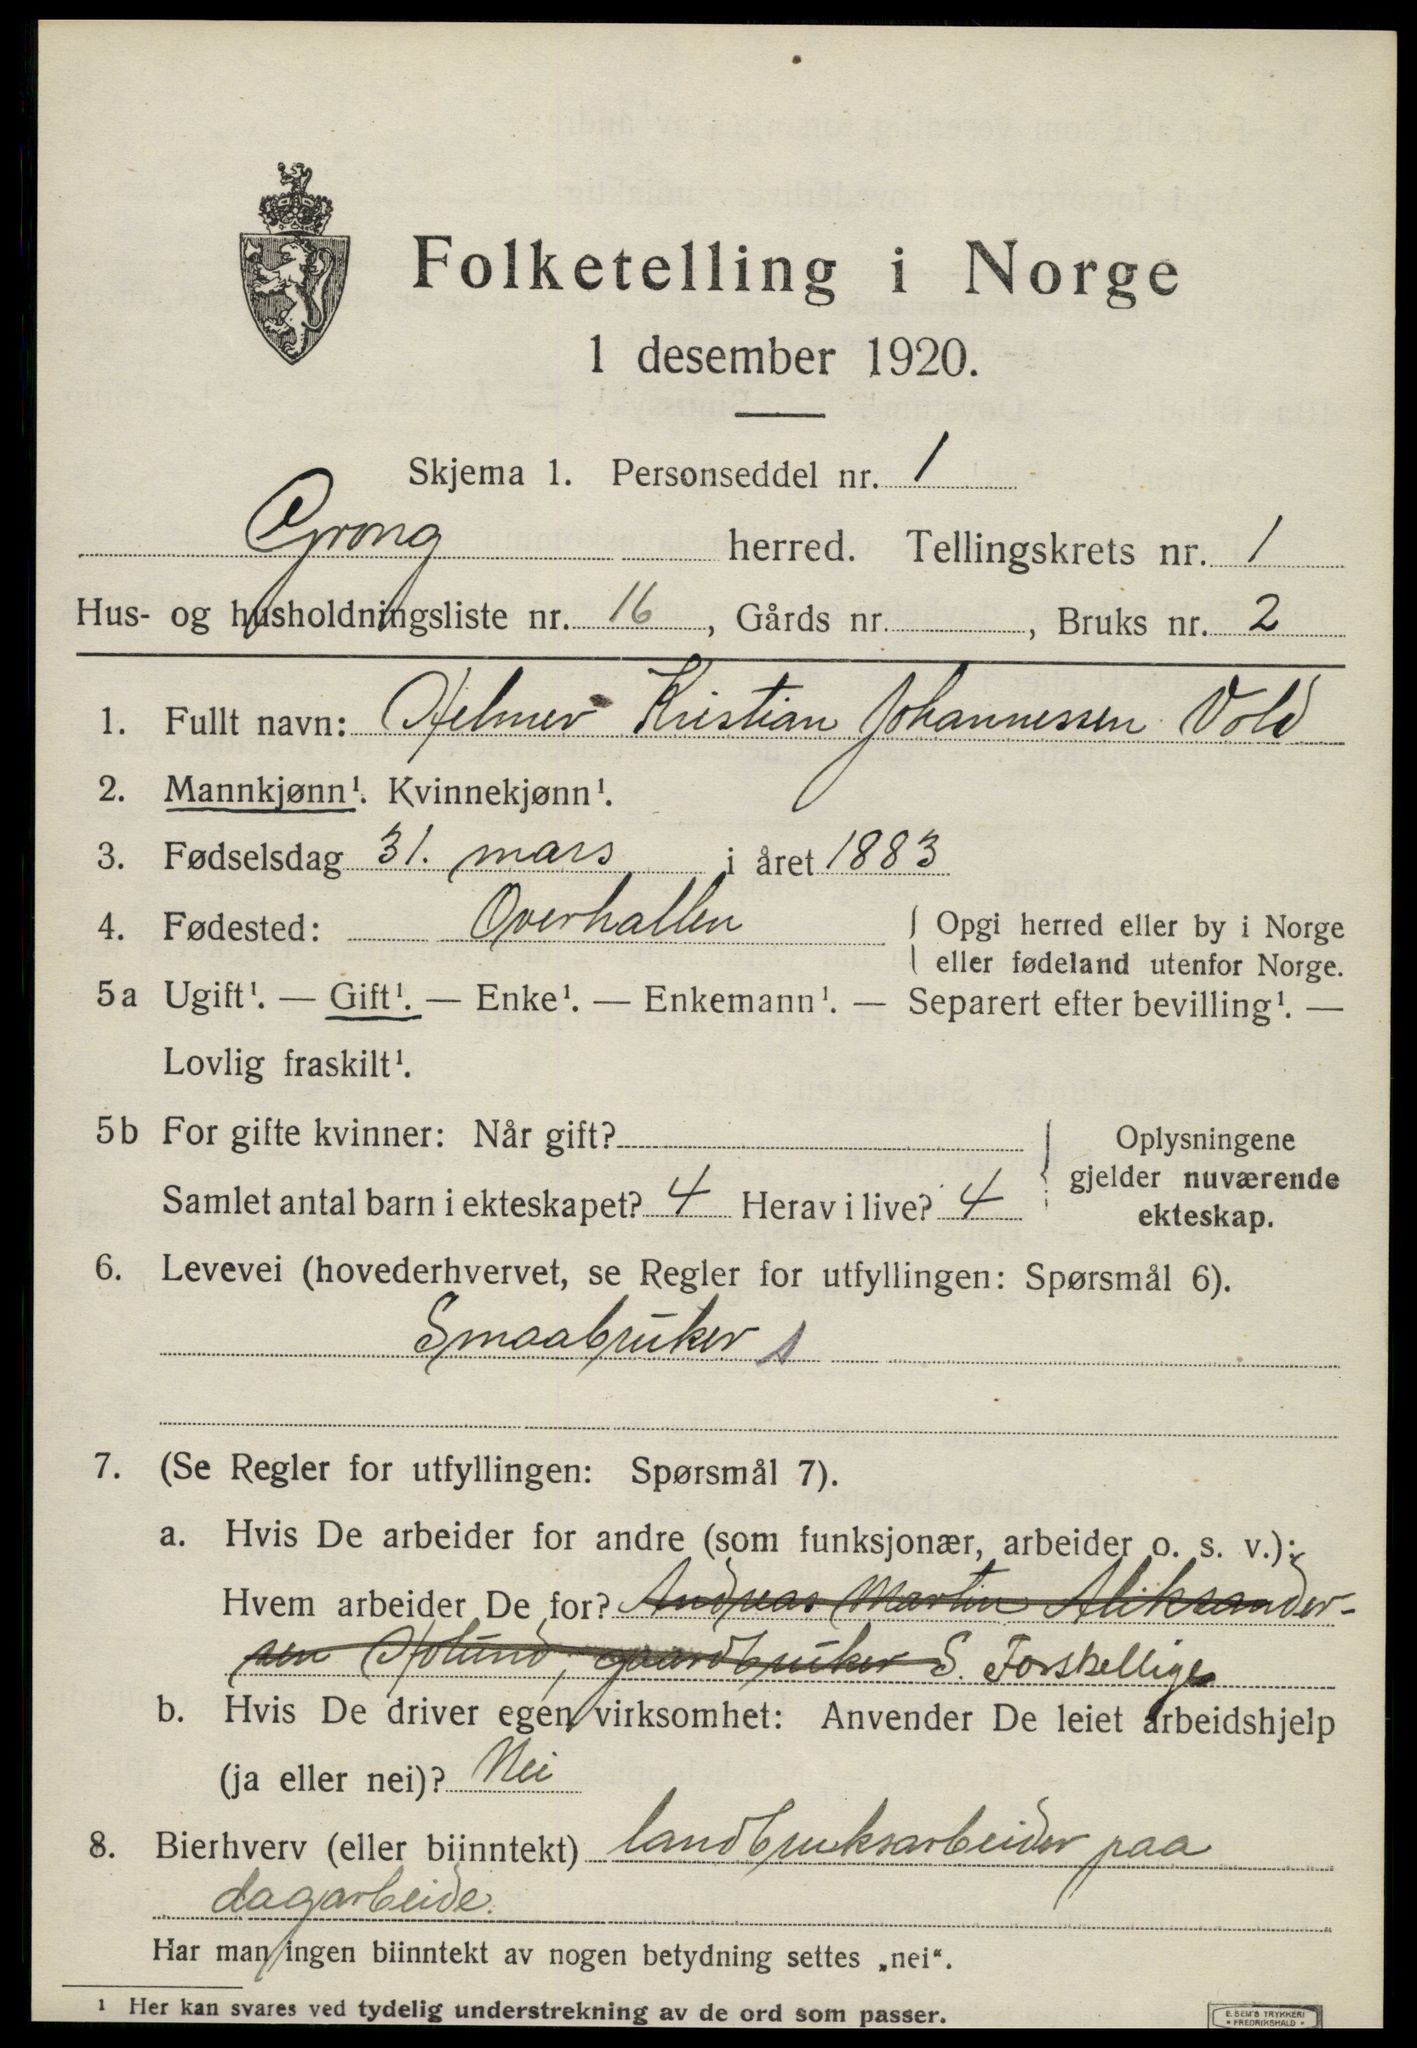 Folketelling i Norge
1 desember 1920.
Skjema 1. Personseddel nr. 1
Grong herred. Tellingskrets nr. 1
Hus- og husholdningsliste nr. 16, Gårds nr. , Bruks nr. 2
1. Fullt navn: Helmer Kristian Johannessen Vold
2. Mannkjønn¹. Kvinnekjønn¹.
3. Fødselsdag 31. mars i året 1883
4. Fødested: Overhallen { Opgi herred eller by i Norge
eller fødeland utenfor Norge.
5a Ugift¹. — Gift¹. — Enke¹. — Enkemann¹. — Separert efter bevilling¹. —
Lovlig fraskilt¹.
5b For gifte kvinner: Når gift? { Oplysningene
gjelder nuværende
Samlet antal barn i ekteskapet? 4 Herav i live? 4
ekteskap.
6. Levevei (hovederhvervet, se Regler for utfyllingen: Spørsmål 6).
Smaabruker s
7. (Se Regler for utfyllingen: Spørsmål 7).
a. Hvis De arbeider for andre (som funksjonær, arbeider o. s. v.):
Hvem arbeider De for? Andreas Martin Aliksander-
sen gaardbruker S. Forskellige
b. Hvis De driver egen virksomhet: Anvender De leiet arbeidshjelp
(ja eller nei)? Nei
8. Bierhverv (eller biinntekt) landbruksarbeider paa
dagarbeide.
Har man ingen biinntekt av nogen betydning settes „nei“.
¹ Her kan svares ved tydelig understrekning av de ord som passer.
E. SEM'S TRYKKERI
• FREDRIKSHALD •